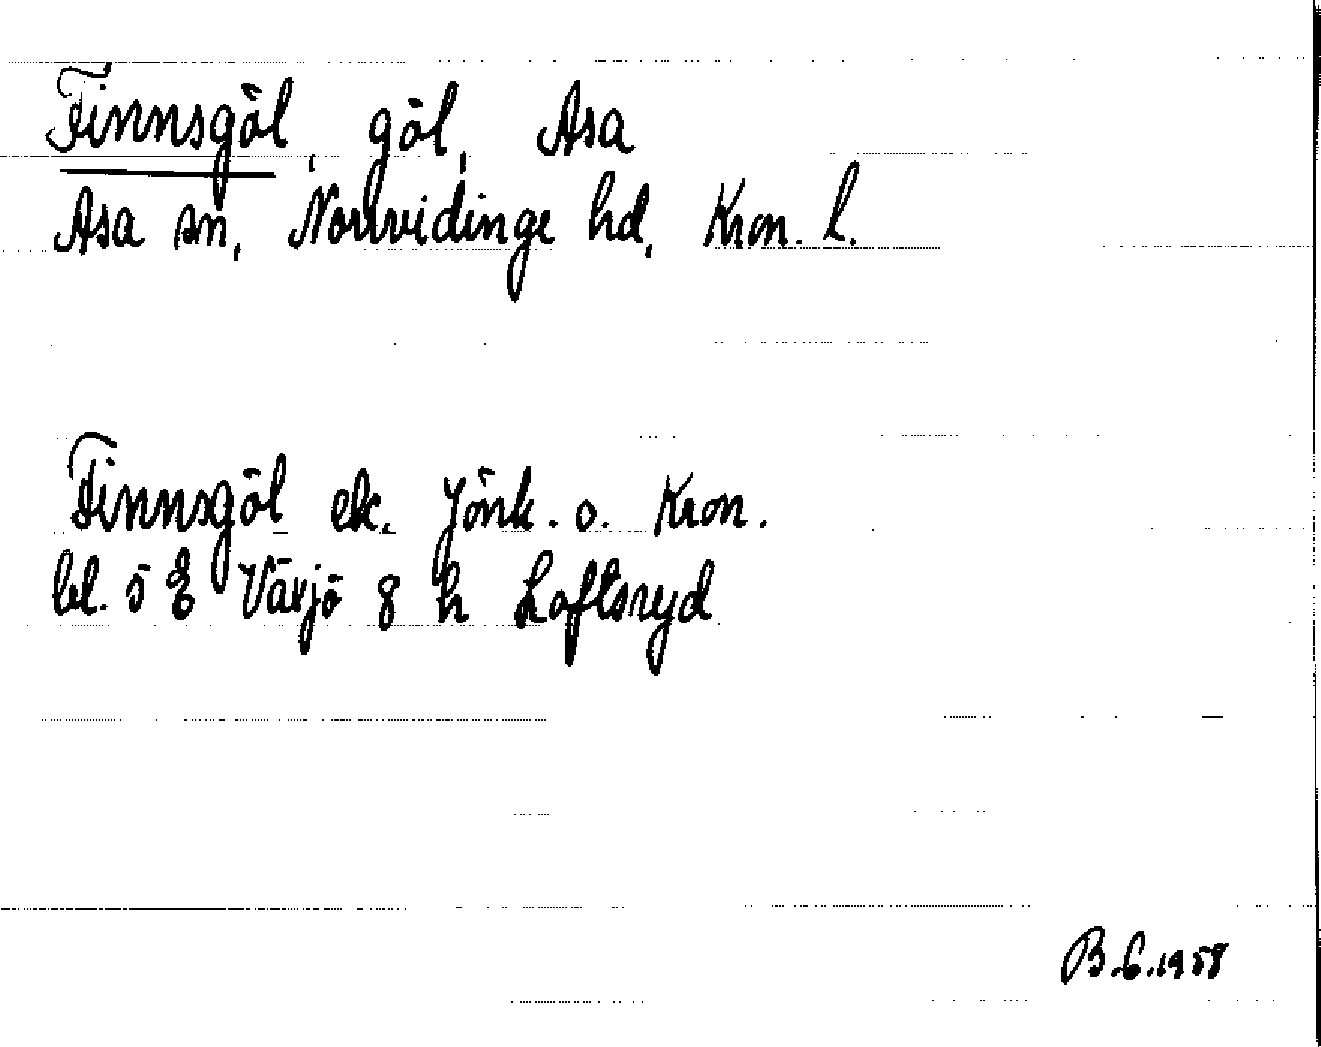 Finnsgöl, göl, Asa
Asa sn, Norrvidinge hd, Kron. l.
Finnsgöl ek. Jönk. o. Kron.
bl. 5 E Växjö 8 h Loftsryd
B.C.1958